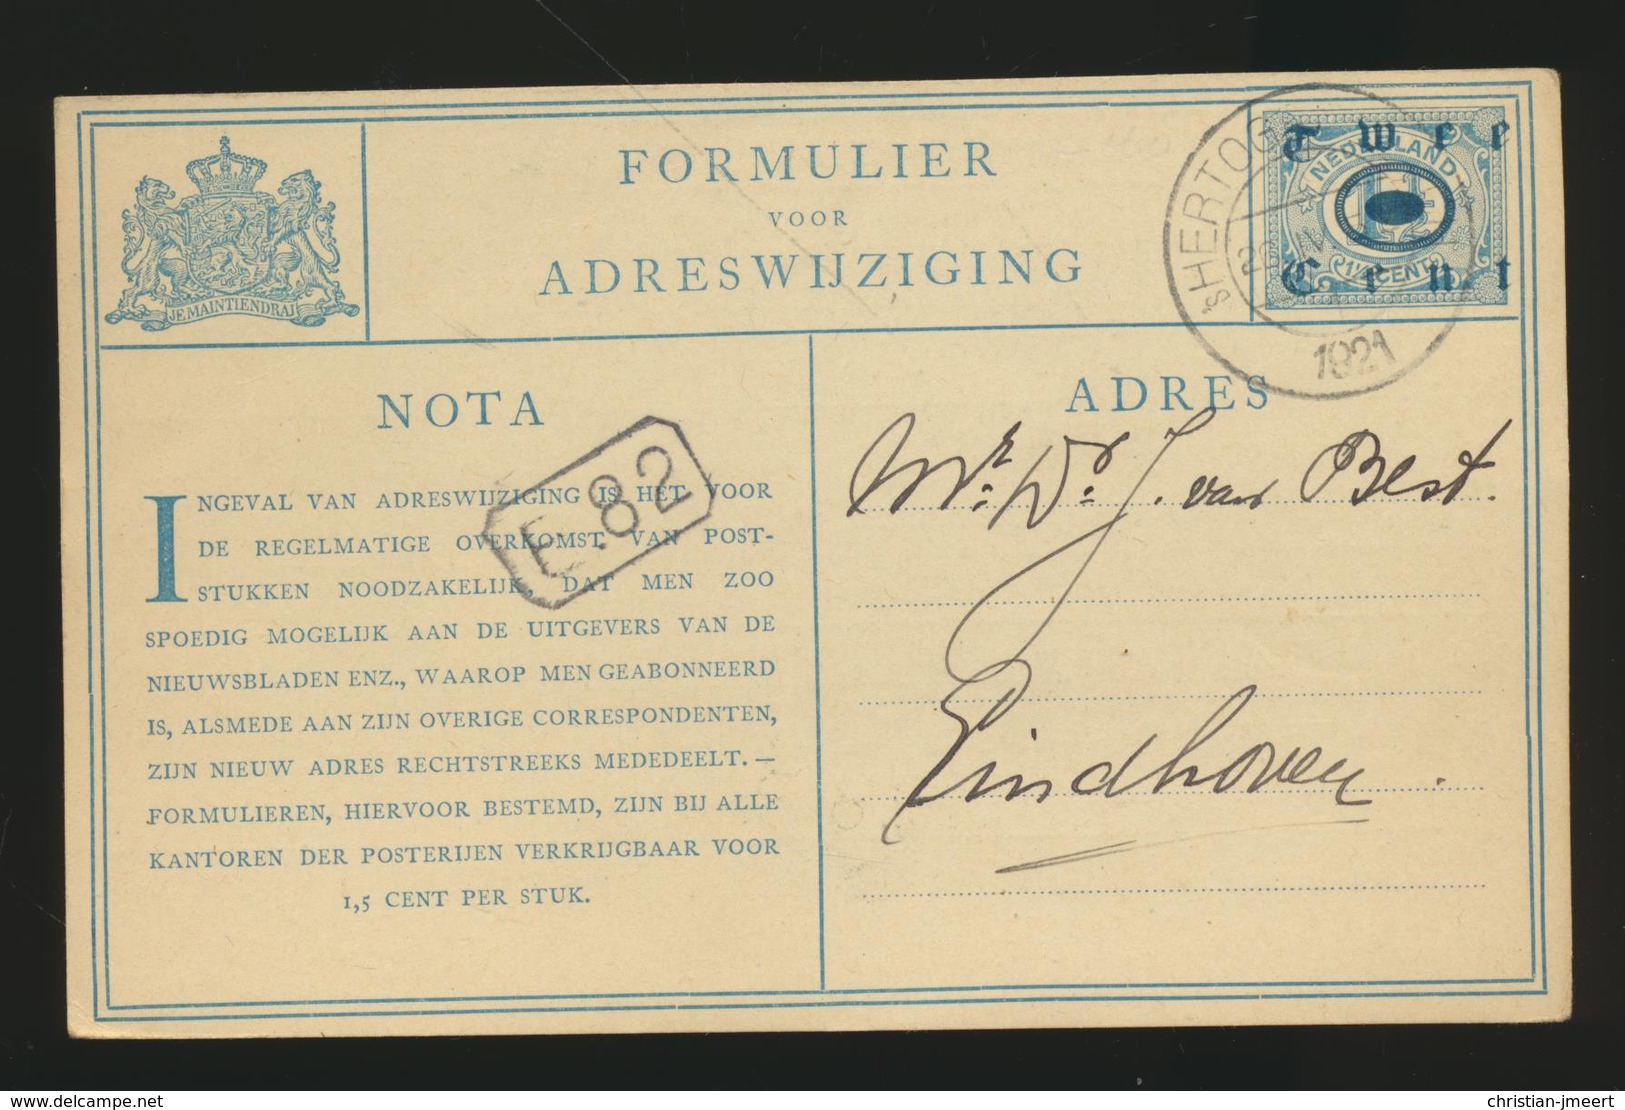 FORMULIER
VOOR
ADRESWIJZIGING
JE MAINTIENDRAI
Twee
NEDERLAND
1½ CENT
Cent
'sHERTOG
1921
NOTA
INGEVAL VAN ADRESWIJZIGING IS HET VOOR
DE REGELMATIGE OVERKOMST VAN POST-
STUKKEN NOODZAKELIJK, DAT MEN ZOO
SPOEDIG MOGELIJK AAN DE UITGEVERS VAN DE
NIEUWSBLADEN ENZ., WAAROP MEN GEABONNEERD
IS, ALSMEDE AAN ZIJN OVERIGE CORRESPONDENTEN,
ZIJN NIEUW ADRES RECHTSTREEKS MEDEDEELT. —
FORMULIEREN, HIERVOOR BESTEMD, ZIJN BIJ ALLE
KANTOREN DER POSTERIJEN VERKRIJGBAAR VOOR
1,5 CENT PER STUK.
E.82
ADRES
Mr. Dr. J. van Best.
Eindhoven.
delcampe.net
christian-jmeert